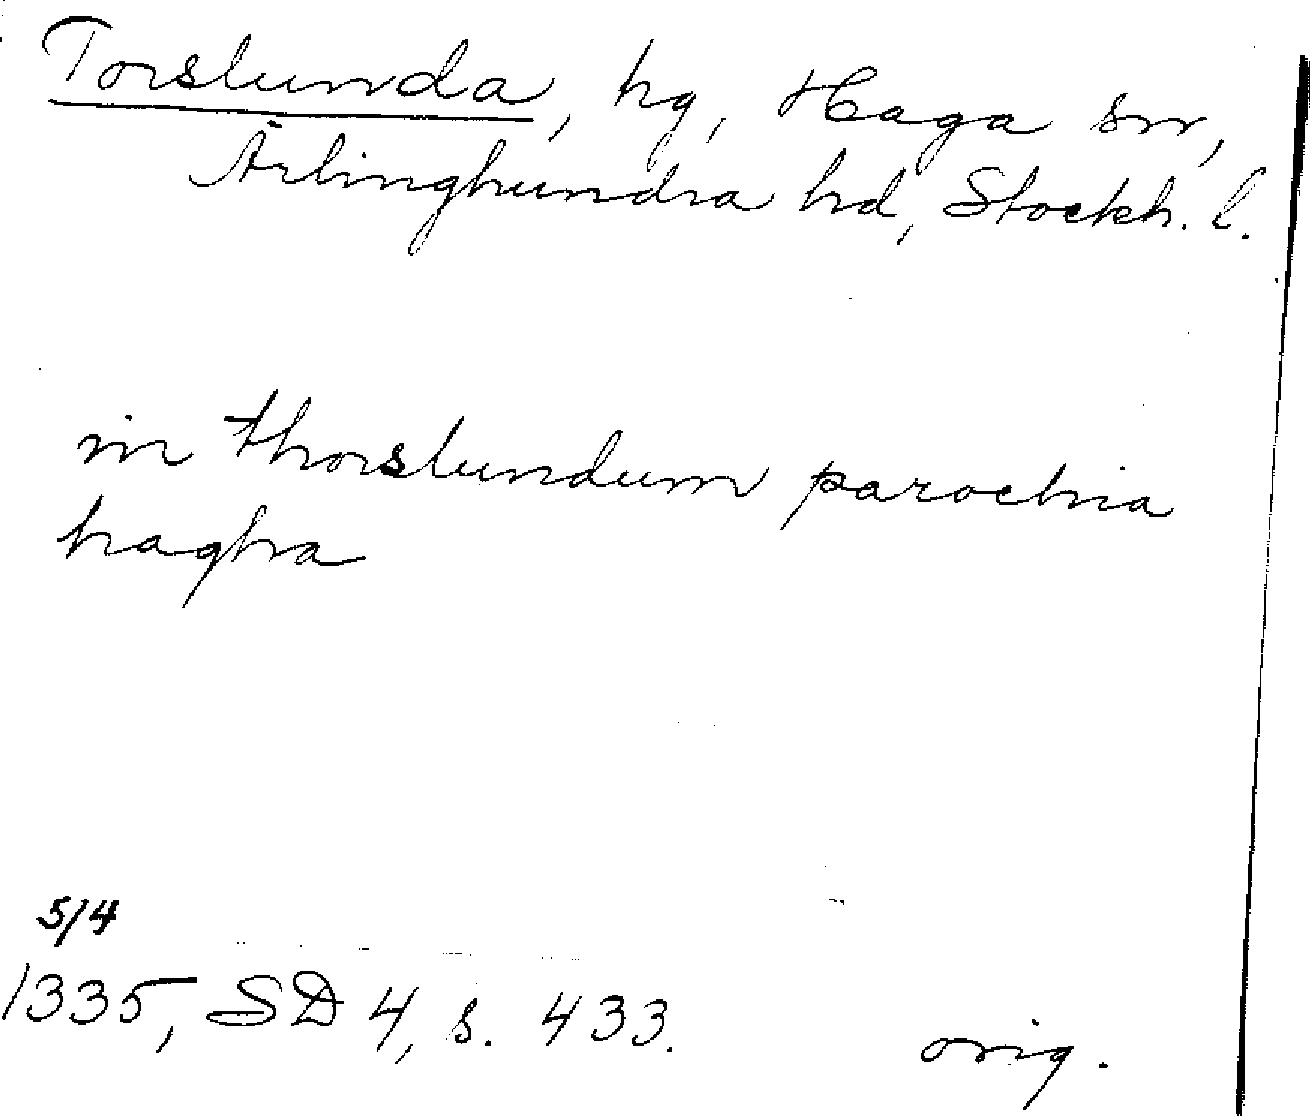 Torslunda, hg, Haga sn,
Ärlinghundra hd, Stockh. l.
in thorslundum parochia
haghra
5/4
1335, SD 4, s. 433.
orig.